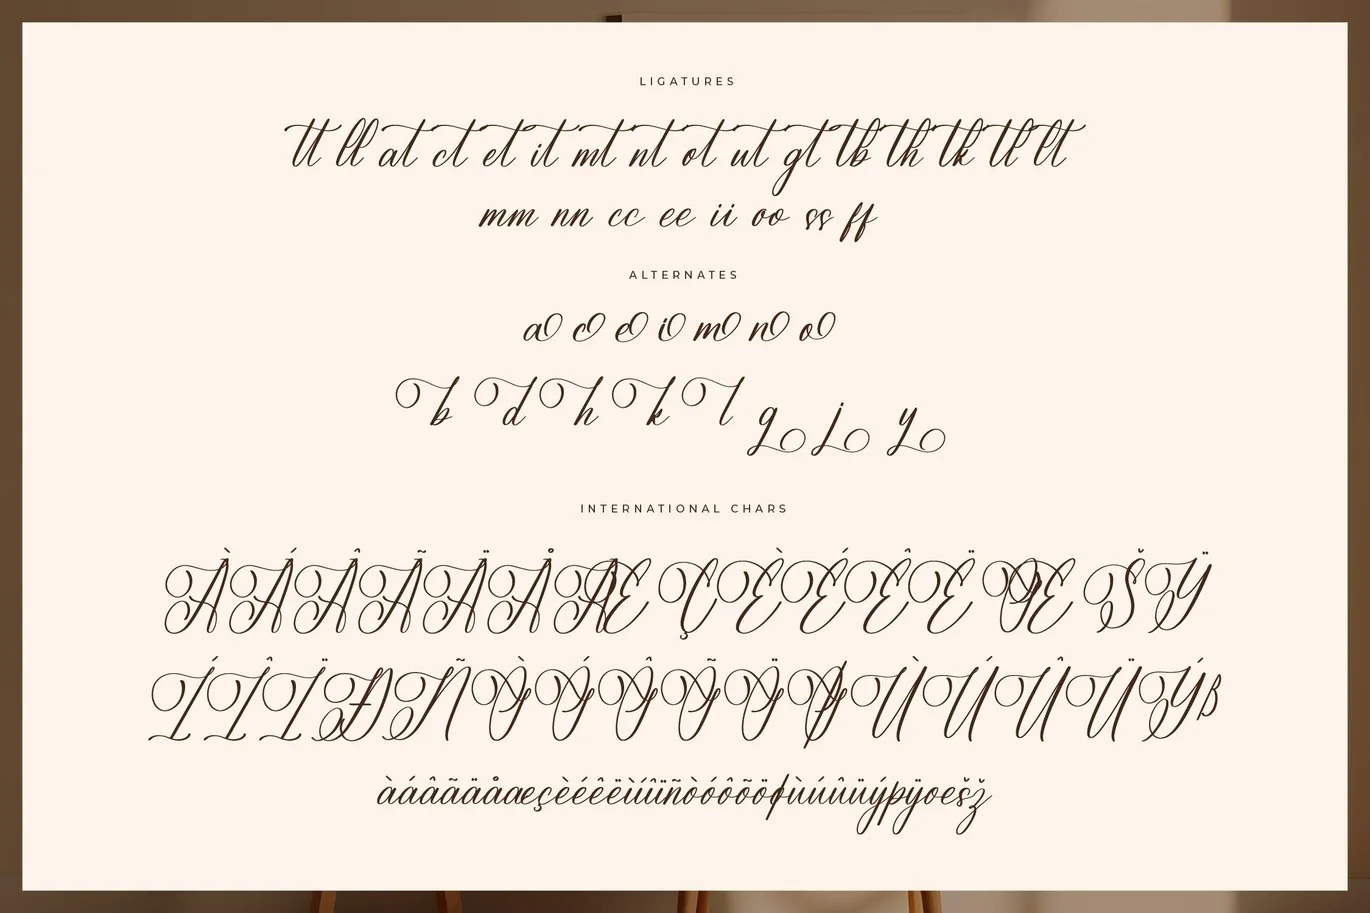 LIGATURES
tt ll at ct et it mt nt ot ut gt tb th tk tl lt
mm nn cc ee ii oo ss ff
ALTERNATES
a c e i m n o
b d h k l g j y
INTERNATIONAL CHARS
À Á Â Ã Ä Å Æ Ç È É Ê Ë Œ Š Ÿ
Í Î Ï Ð Ñ Ò Ó Ô Õ Ö Ø Ù Ú Û Ü Ý ß
àáâãäåæçèéêëìíîïñòóôõöøùúûüýþÿœšž